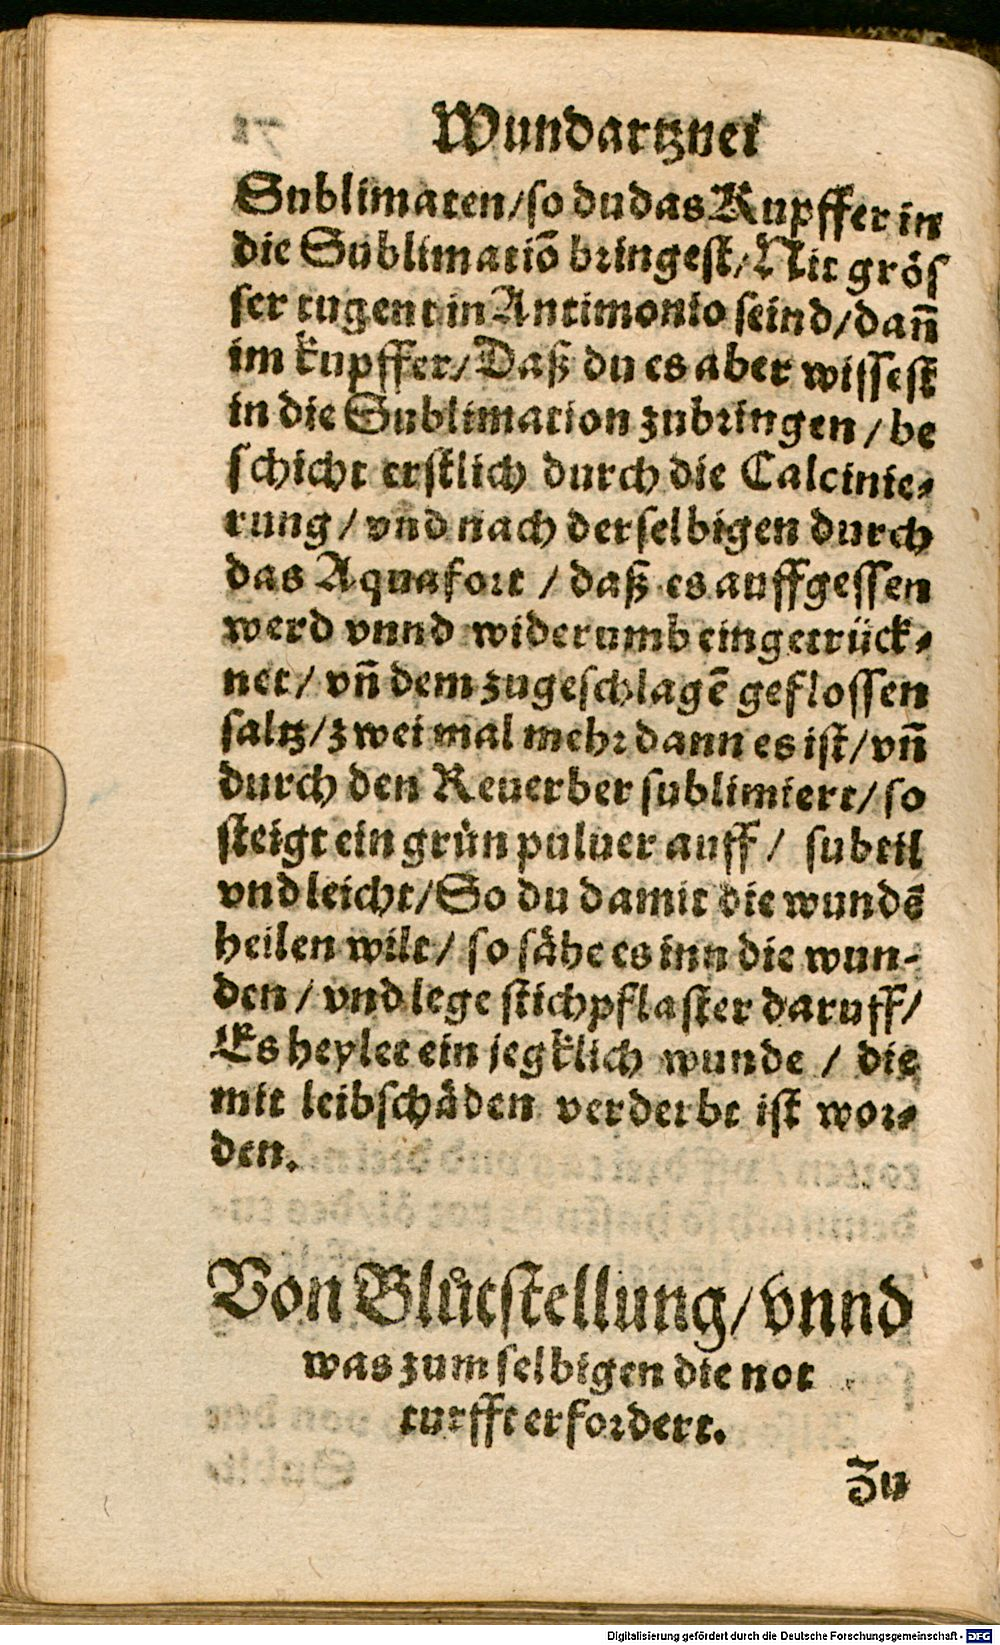 Wundartznei
Sublimaten/so du das Kupffer in
die Sublimatiõ bringest/Nit grös
ser tugent in Antimonio seind/dañ
im kupffer/Daß du es aber wissest
in die Sublimation zubringen/be
schicht erstlich durch die Calcinie⸗
rung/vnd nach derselbigen durch
das Aquafort/daß es auffgessen
werd vnnd widerumb eingetrück⸗
net/vñ dem zugeschlagẽ geflossen
saltz/zwei mal mehr dann es ist/vñ
durch den Reuerber sublimiert/so
steigt ein grün puluer auff/ subtil
vnd leicht/So du damit die wundẽ
heilen wilt/ so sähe es inn die wun-
den/vnd lege stichpflaster daruff/
Es heylet ein jegklich wunde/ die
mit leibschäden verderbt ist wor⸗
den.
Von Blůtstellung/vnnd
was zum selbigen die not
turfft erfordert.
Zu
Digitalisierung gefördert durch die Deutsche Forschungsgemeinschaft - DFG